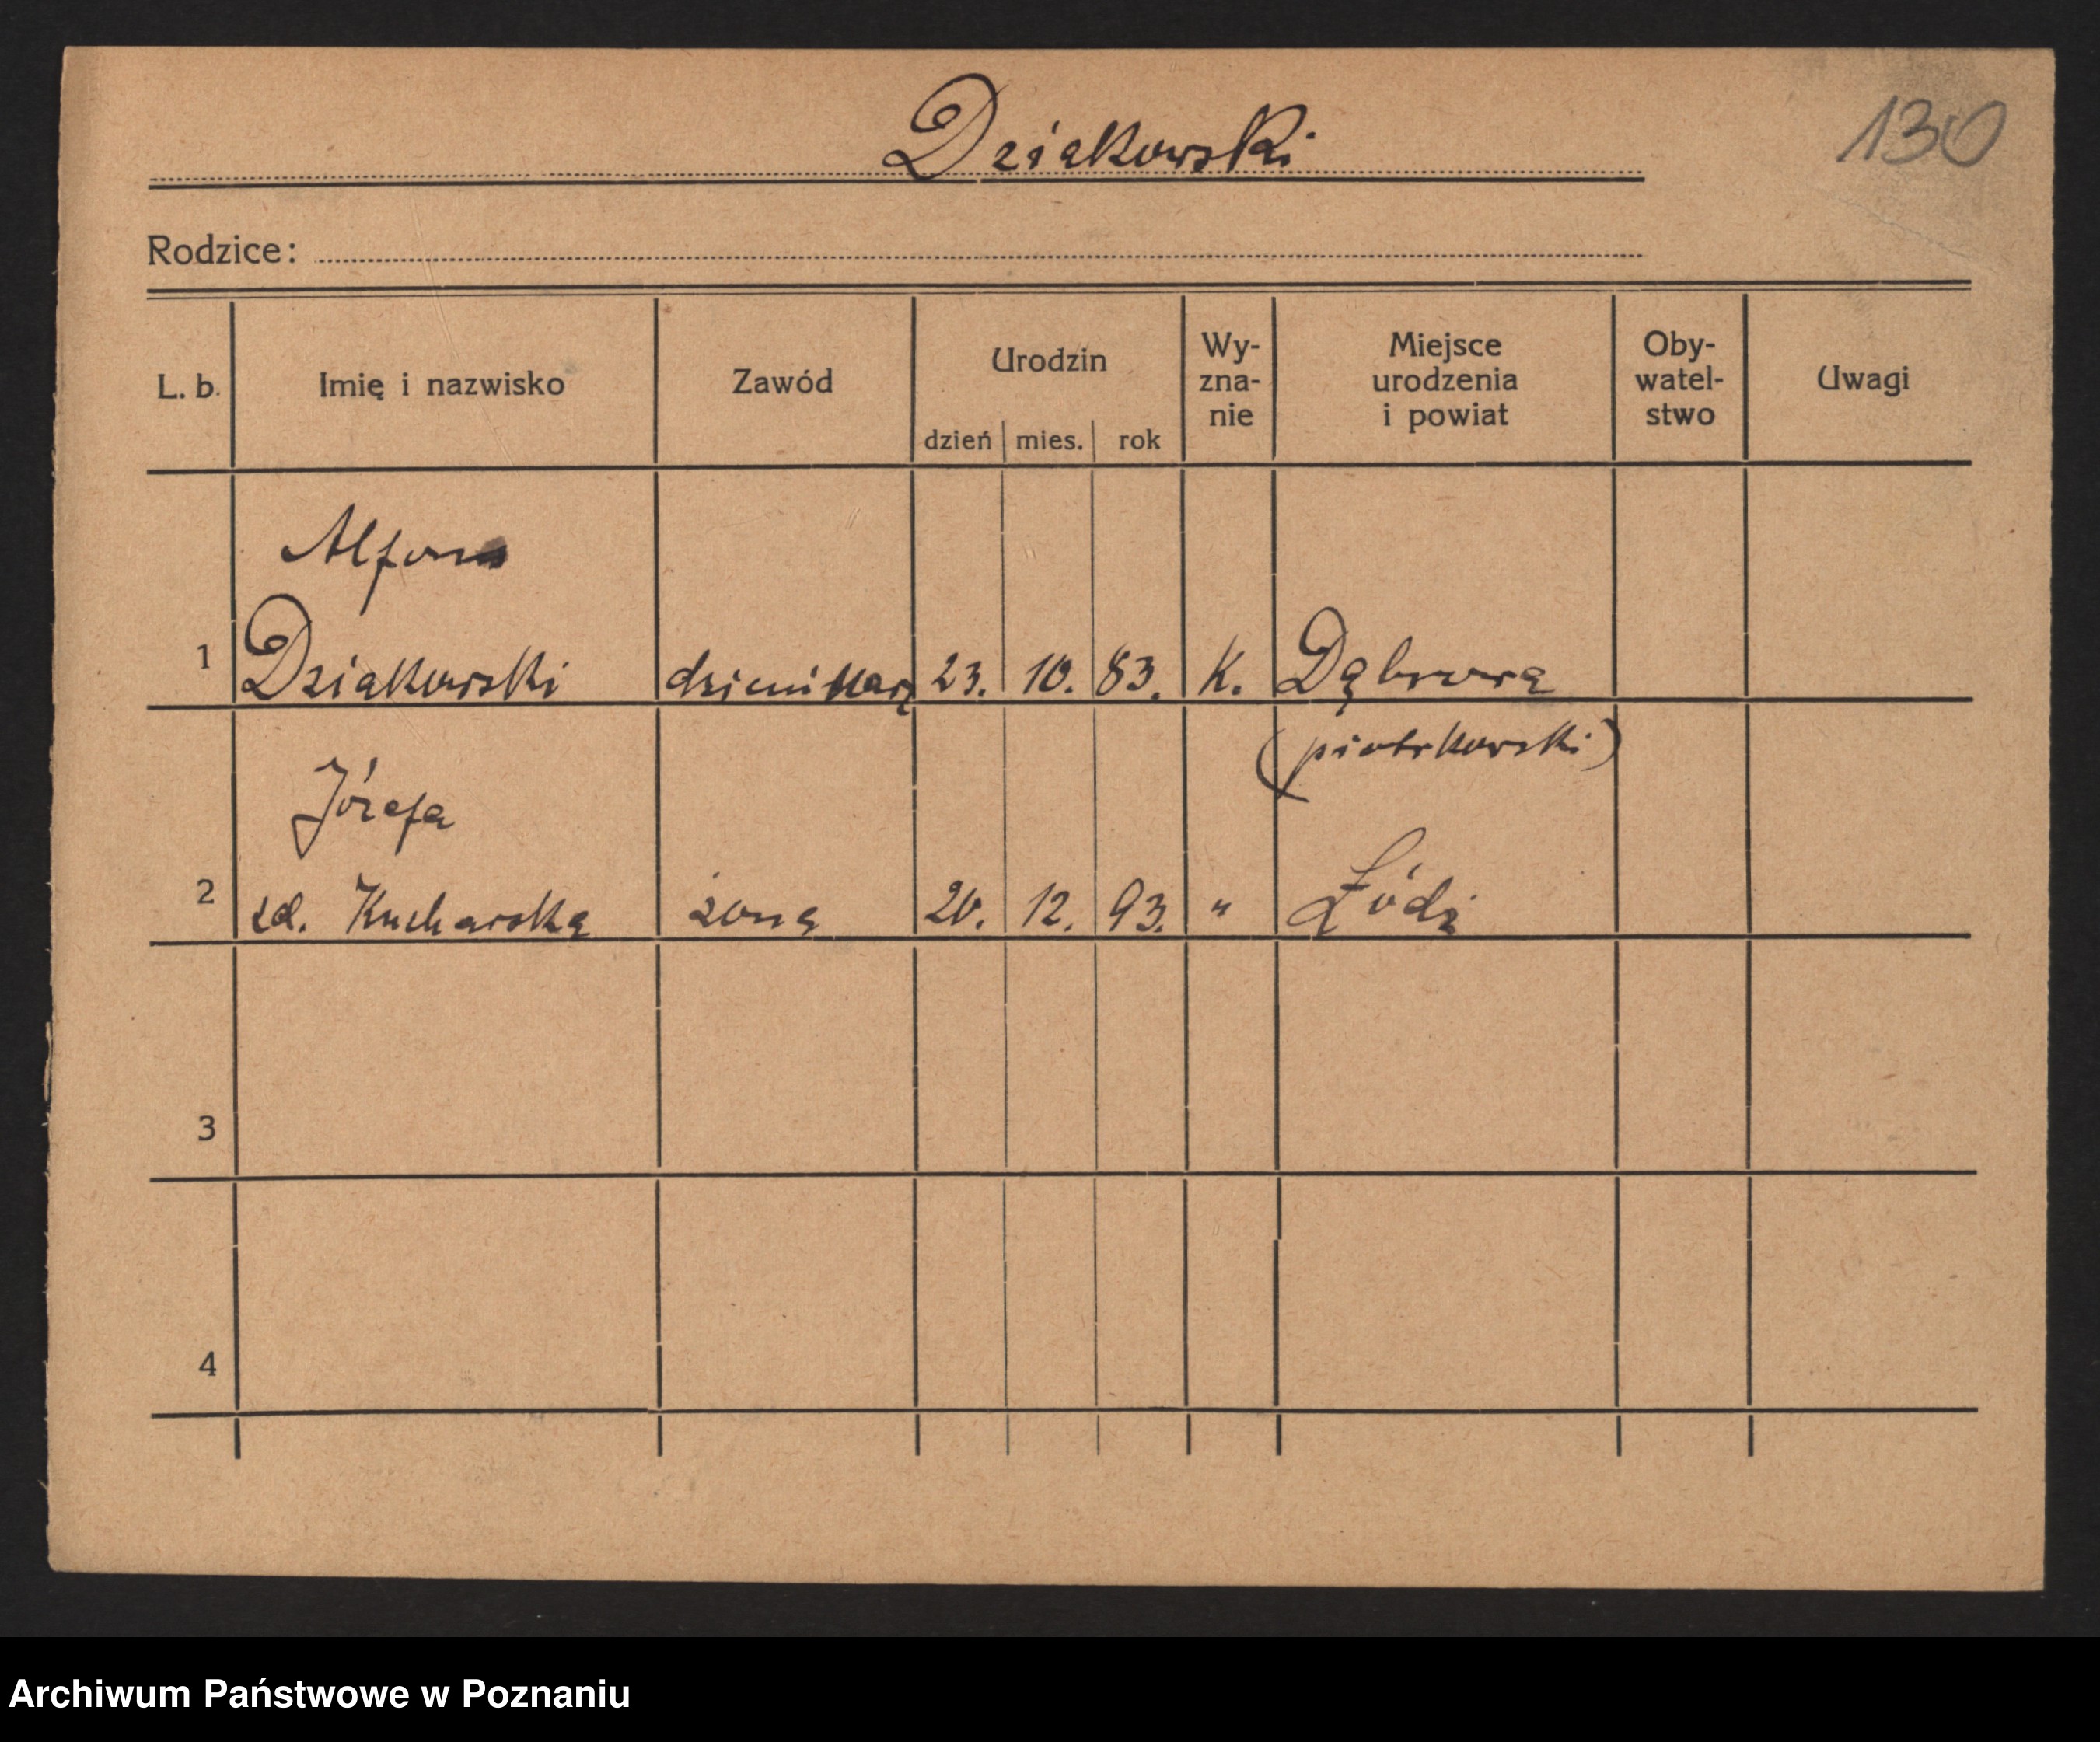 Dziakowski
130
Rodzice:
L. b.
Imię i nazwisko
Zawód
Urodzin
dzień mies. rok
Wy-
zna-
nie
Miejsce
urodzenia
i powiat
Oby-
watel-
stwo
Uwagi
Alfons
1 Dziakowski dziennikarz 23. 10. 83. K. Dąbrowa
(piotrkowski)
Józefa
2 zd. Kucharska żona 20. 12. 93. " Łódź
3
4
Archiwum Państwowe w Poznaniu